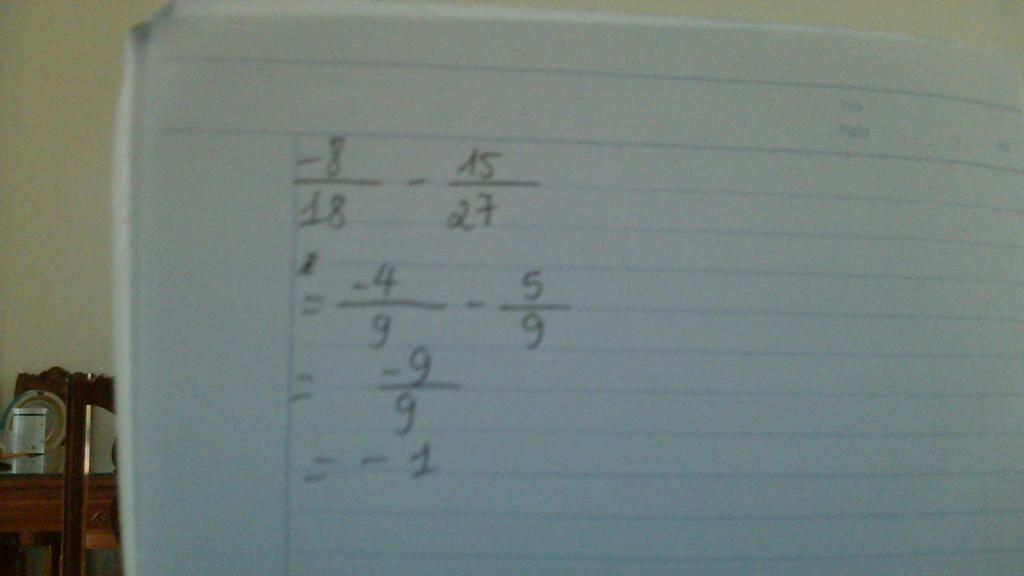 -8/18 - 15/27
= -4/9 - 5/9
= -9/9
= - 1